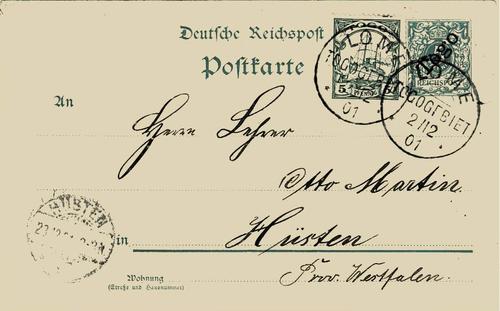 Deutsche Reichspost
Postkarte
TOGO
LOME
5 PFENNIG 5
01
REICHSPOST
Togo
LOME
TOGOGEBIET
2/12
01
An
Herrn Lehrer
Otto Martin.
HÜSTEN
in
Hüsten
Prov. Westfalen.
Wohnung
(Straße und Hausnummer)